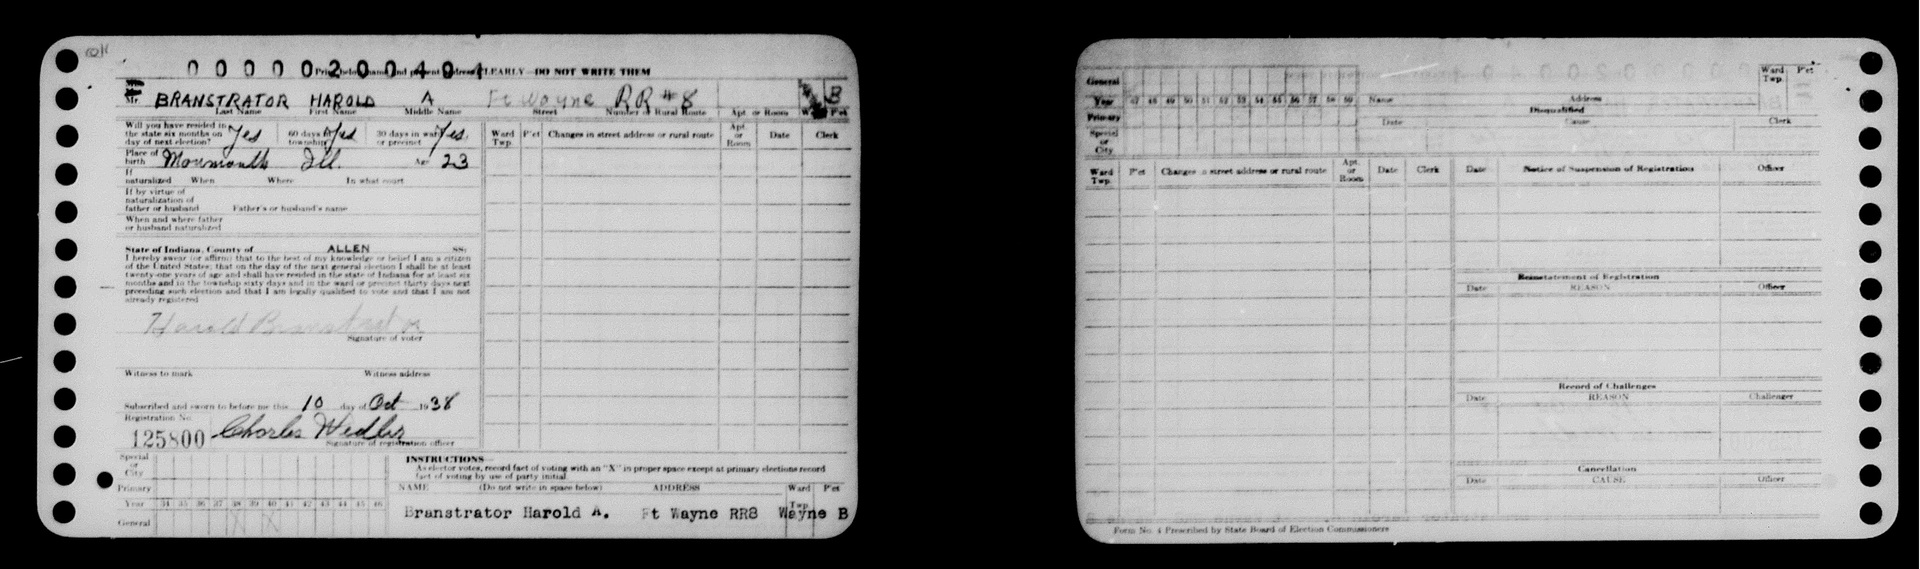 OK
00000200404
Print below name and present address CLEARLY—DO NOT WRITE THEM
Mr. BRANSTRATOR HAROLD A Ft Wayne RR #8 B
Last Name First Name Middle Name Street Number or Rural Route Apt. or Room W P'ct
Will you have resided in
the state six months on
day of next election? Yes 60 days in township Yes 30 days in ward or precinct Yes.
Place of birth Monmouth Ill. Age 23
If
naturalized When Where In what court
If by virtue of
naturalization of
father or husband Father's or husband's name
When and where father
or husband naturalized
State of Indiana, County of ALLEN SS:
I hereby swear (or affirm) that to the best of my knowledge or belief I am a citizen
of the United States; that on the day of the next general election I shall be at least
twenty-one years of age and shall have resided in the state of Indiana for at least six
months and in the township sixty days and in the ward or precinct thirty days next
preceding such election and that I am legally qualified to vote and that I am not
already registered
Harold Branstrator
Signature of voter
Witness to mark Witness address
Subscribed and sworn to before me this 10 day of Oct 1938
Registration No.
125800 Charles Wedler
Signature of registration officer
Ward Twp. P'ct Changes in street address or rural route Apt. or Room Date Clerk
Special
or
City
Primary
Year 34 35 36 37 38 39 40 41 42 43 44 45 46
General X X
INSTRUCTIONS—
As elector votes, record fact of voting with an "X" in proper space except at primary elections record
fact of voting by use of party initial.
NAME (Do not write in space below) ADDRESS Ward Twp. P'ct
Branstrator Harold A. Ft Wayne RR8 Wayne B
General
Year 47 48 49 50 51 52 53 54 55 56 57 58 59
Primary
Special
or
City
Ward Twp. P'ct
Name Address
Disqualified
Date Cause Clerk
Ward Twp. P'ct Changes in street address or rural route Apt. or Room Date Clerk
Date Notice of Suspension of Registration Officer
Reinstatement of Registration
Date REASON Officer
Record of Challenges
Date REASON Challenger
Cancellation
Date CAUSE Officer
Form No. 4 Prescribed by State Board of Election Commissioners